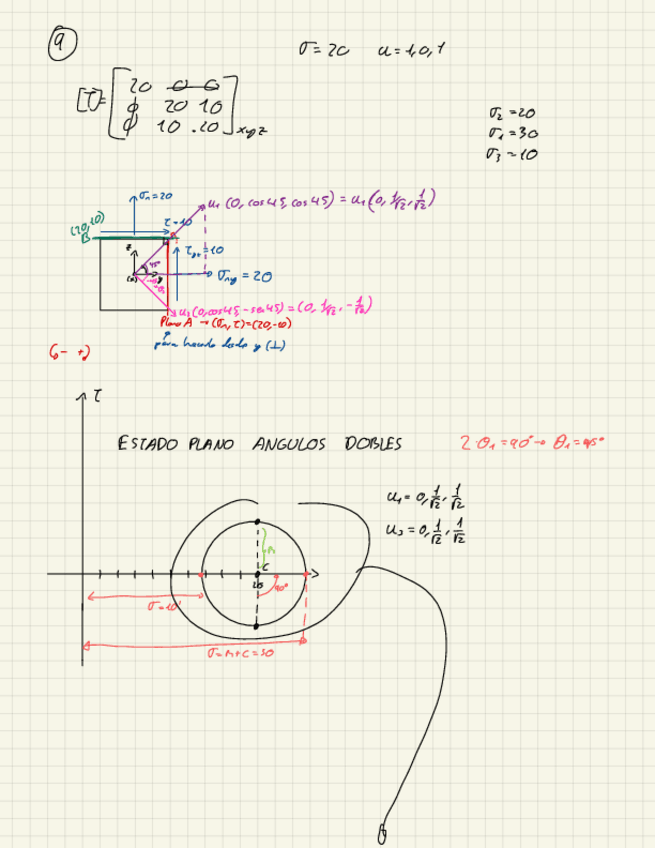 9
σ = 20 u = 1, 0, 1
[T] = [ 20 0 0
ϕ 20 10
ϕ 10 20 ]xyz
σ2 = 20
σ1 = 30
σ3 = 10
σn = 20
u1 (0, cos 45, cos 45) = u1 (0, 1/√2, 1/√2)
(20, 10)
B
τ = 10
= 10
z
45°
(x)
y
σny = 20
u3 (0, cos 45 - sen 45) = (0, 1/√2, -1/√2)
Plano A → (σn, τ) = (20, -10)
(- +)
τ
ESTADO PLANO ANGULOS DOBLES
2·θ1 = 90° → θ1 = 45°
u1 = 0, 1/√2, 1/√2
u3 = 0, 1/√2, 1/√2
R
C
20
90°
σ = 10
σ = R + C = 30